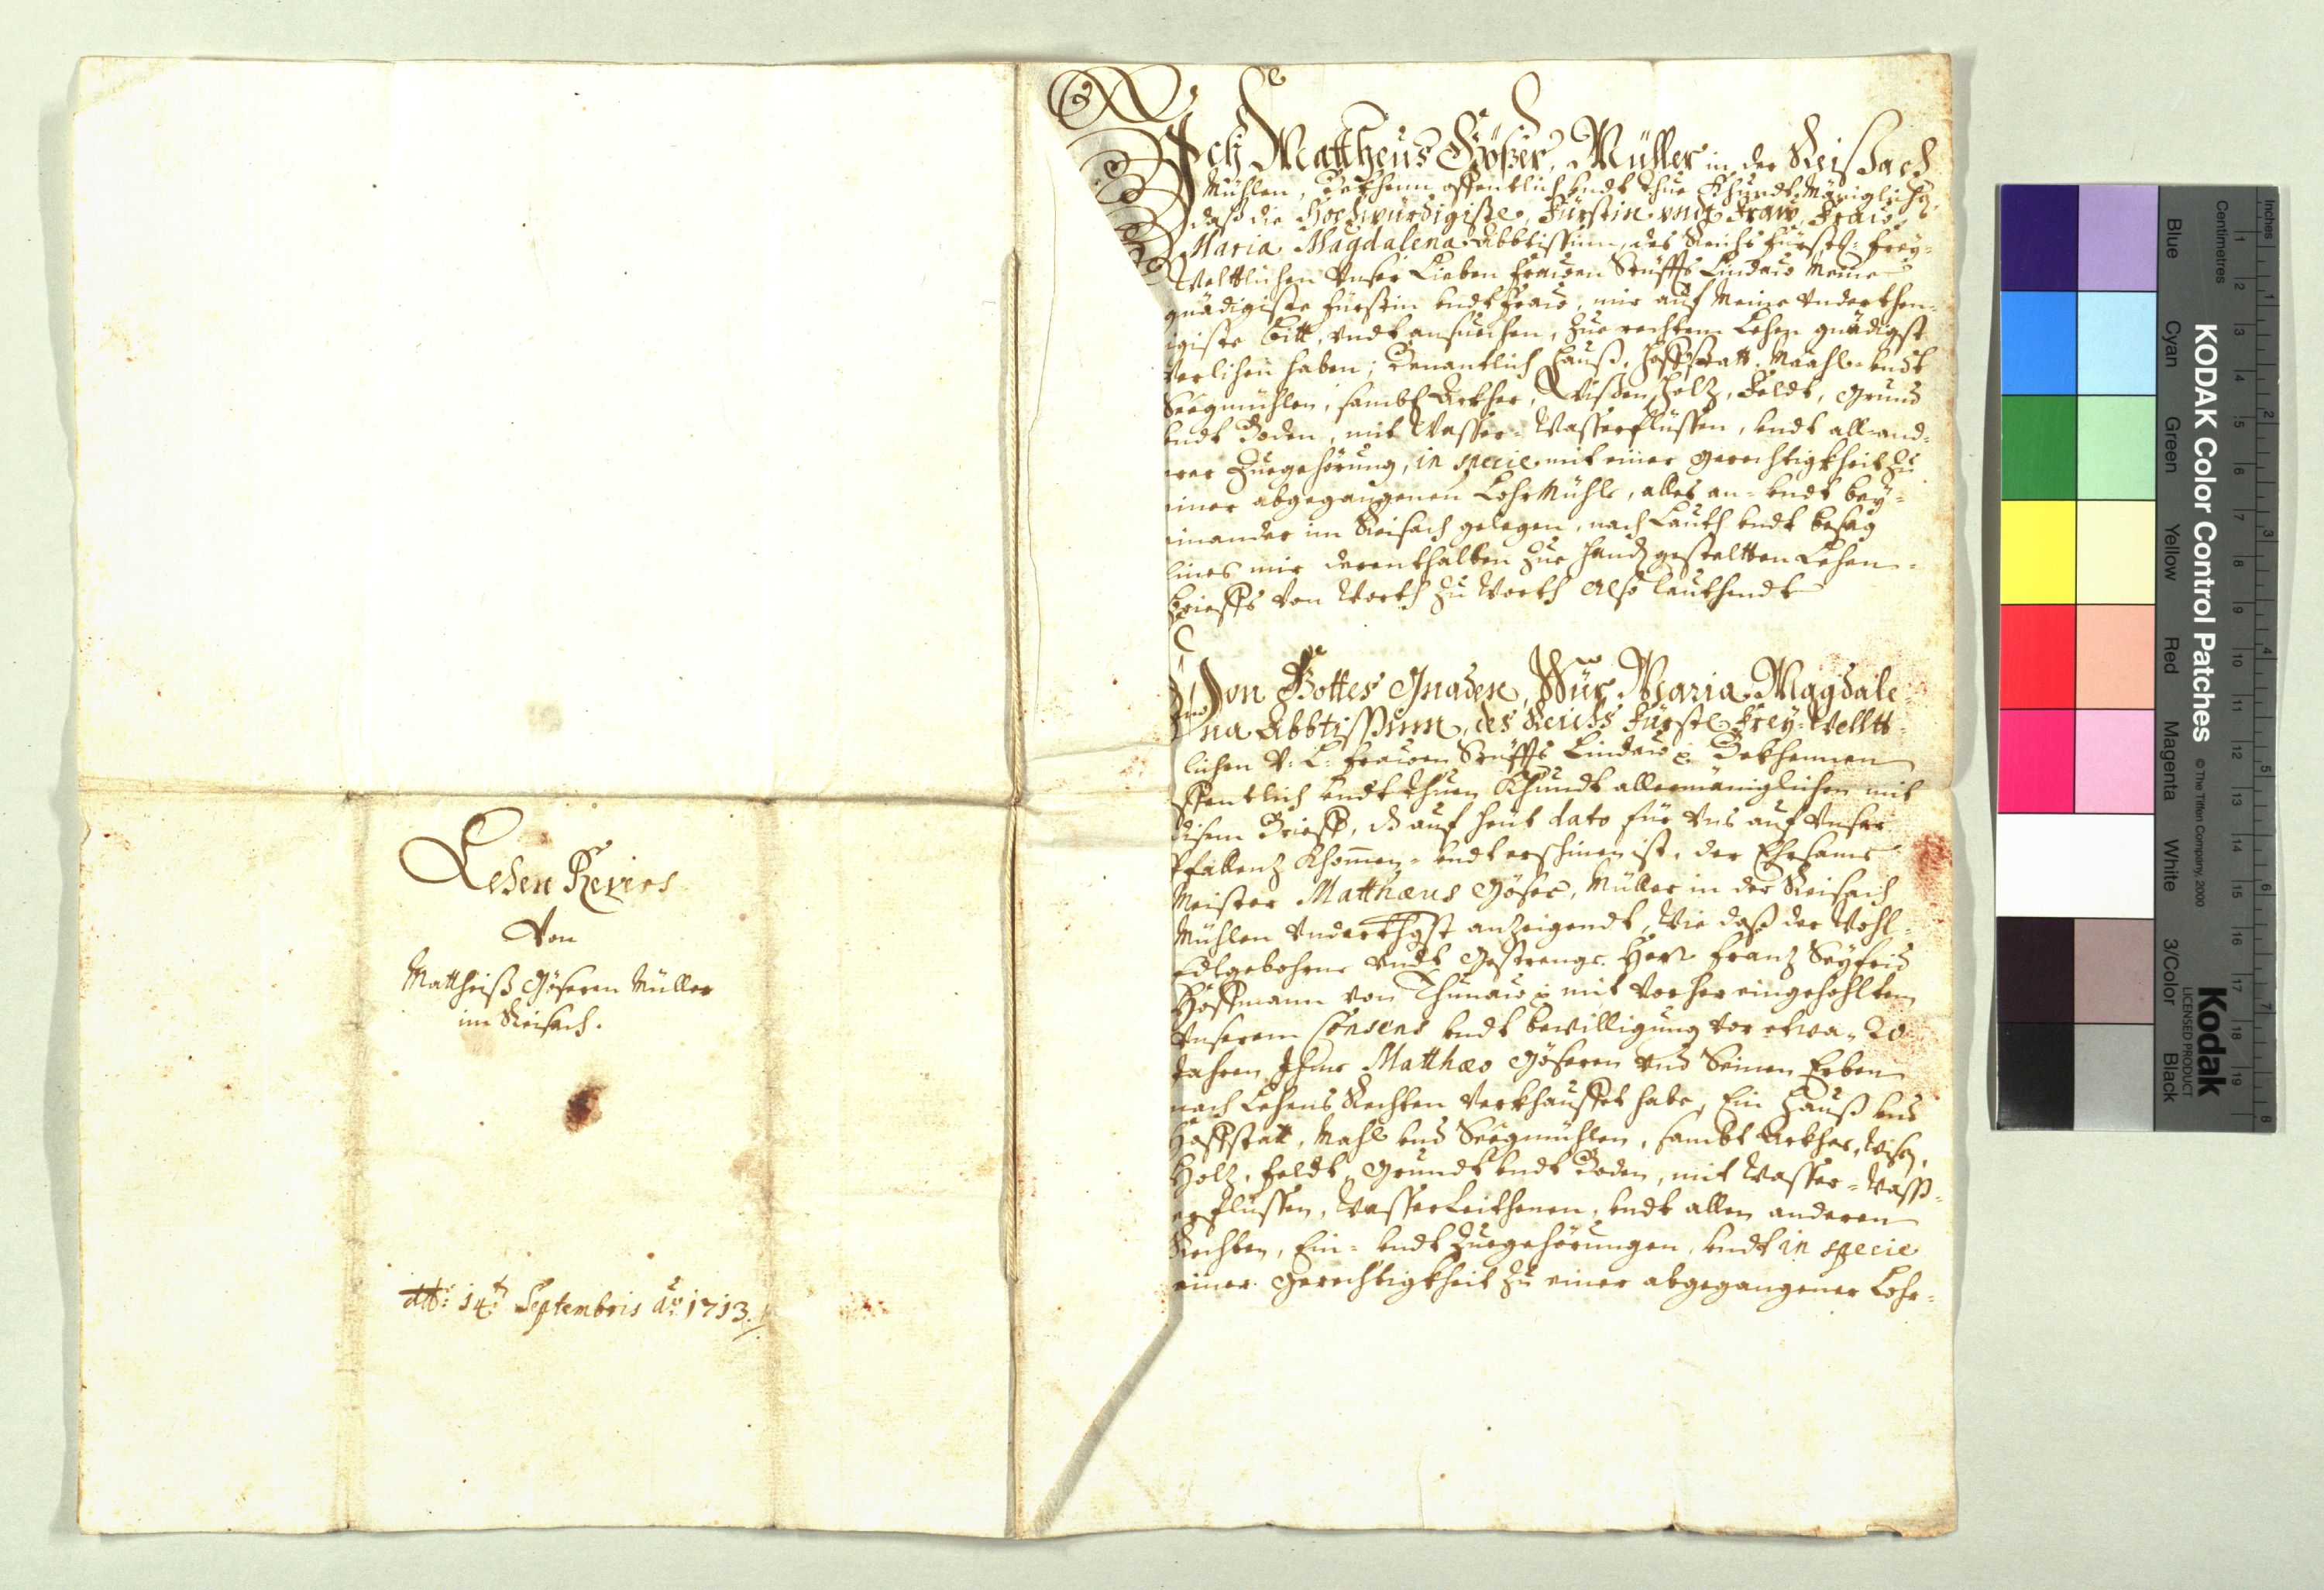 Lehen Revers
Von
Mattheiß Göseren Müller
im Reisach.
dtt: 14.t Septembris ao: 1713.
Ich Mattheus Gößer, Müller in der Reißach
Mühlen, Bekhenn offentlich undt thue Khundt Mäniglichen,
daß die Hochwürdigiste, Fürstin und Fraw, Fraw
Maria Magdalena Abbtissinn, des Reichs Fürstl: frey-
Weltlichen Unser Lieben Frawen Stüffts Lindaw Meine
gnädigiste Fürstin undt Fraw, mir auf Meine Underthen-
igiste Bitt, undt ansuechen, zue rechtem Lehen gnädigst
Verlihen haben; Benantlich Hauß, Hoffstatt, Maahl- undt
Seegmühlen, sambt Ackher, Wisen, Holz, Feldt, Grund
undt Boden, mit Wasser- Wasserflüssen, undt all and-
erer Zuegehörung, in specie mit einer Gerechtigkheit zu
einer abgegangenen LohrMühle, alles an- undt bey-
einander im Reisach gelegen, nach Lauth undt besag
eines mir derenthalben zue Hand gesteltten Lehen-
brieffs von Worth zu Worth also lauthendt
Von Gottes Gnaden, Wür Maria Magdale-
na Abbtissinn, des Reichs Fürstl: Frey-Weltt-
lichen U: L: Frawen Stüffts Lindaw p: Bekhennen
offentlich undt thuen Khundt allermäniglichen mit
disem Brieff, dß auf heut dato für Uns auf Unser
Pfallenz Khommen- undt erschinen ist, der Ehrsame
Meister Matthæus Göser, Müller in der Reisach
Mühlen Underthgst anzeigendt, Wie daß der Wohl-
Edlgebohrne undt Gestrenge Herr Franz Seyfrid
Höffmann von Thunaw p: mit vorher eingehohltem
Unserem Consens undt bewilligung vor etwa 20
Jahren Ihme Matthæo Göseren und Seinen Erben
nach Lehens Rechten Verkhauffet habe, Ein Hauß und
Hoffstatt, Mahl und Seegmühlen, sambt Ackher, Wisen,
Holz, Feldt, Grundt undt Boden, mit Wasser- Wass-
erflüssen, Wasserleithenen, undt allen anderen
Rechten, Ein- undt Zuegehörungen, undt in specie
einer Gerechtigkheit zu einer abgegangener Lohr-
KODAK Color Control Patches
© The Tiffen Company, 2000
Kodak
LICENSED PRODUCT
Inches
Centimetres
Blue
Cyan
Green
Yellow
Red
Magenta
White
3/Color
Black
1
2
3
4
5
6
7
8
1
2
3
4
5
6
7
8
9
10
11
12
13
14
15
16
17
18
19